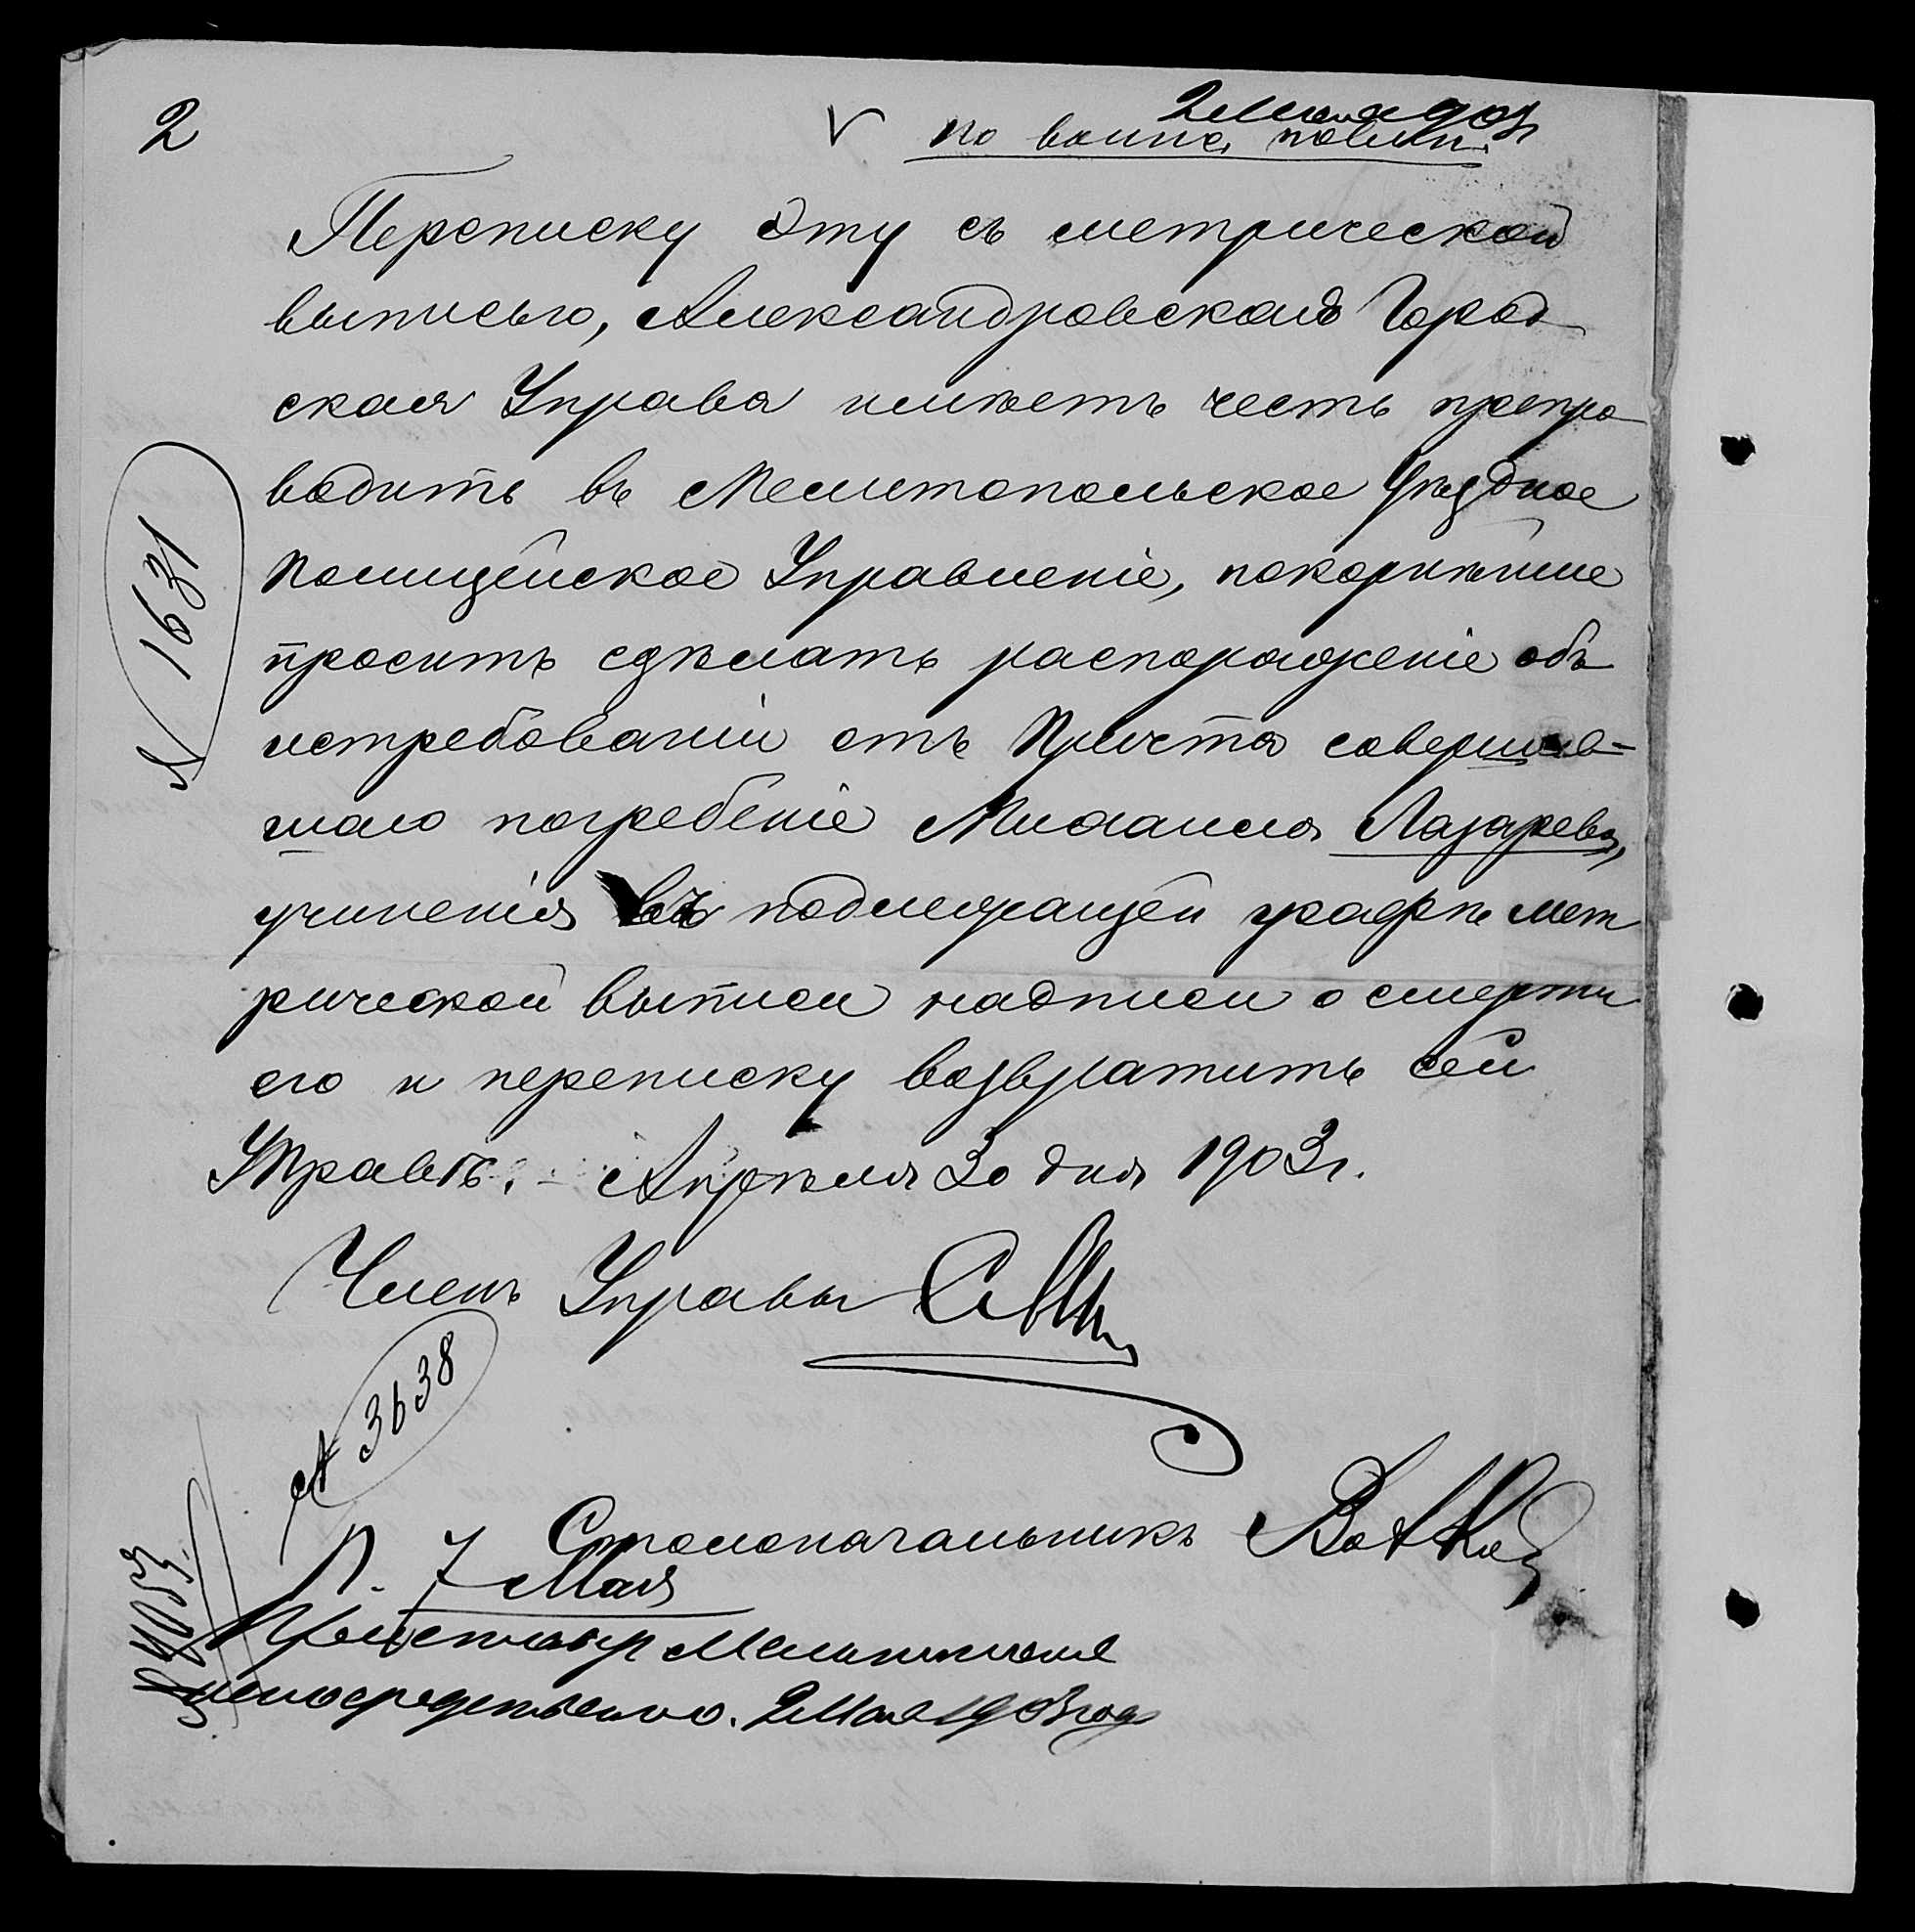 2
2 Мая 903
по воинс. повин.
Переписку эту съ метрической
выписью, Александровская Город
ская Управа имѣетъ честь препро
водить въ Мелитопольское Уѣздное
Полицейское Управленіе, покорнѣйше
просить сдѣлать распоряженіе объ
истребованіи отъ Причта совершав-
шаго погребеніе Михаила Лазарева,
учиненія въ подлежащей графѣ мет
рической выписи надписи о смерти
его и переписку возвратить сей
Управѣ. - Апрѣля 30 дня 1903 г.
№ 1631
Членъ Управы
№ 3638
Столоначальникъ
П. 7 Мая
непосредственно. 2 Мая 1903 года